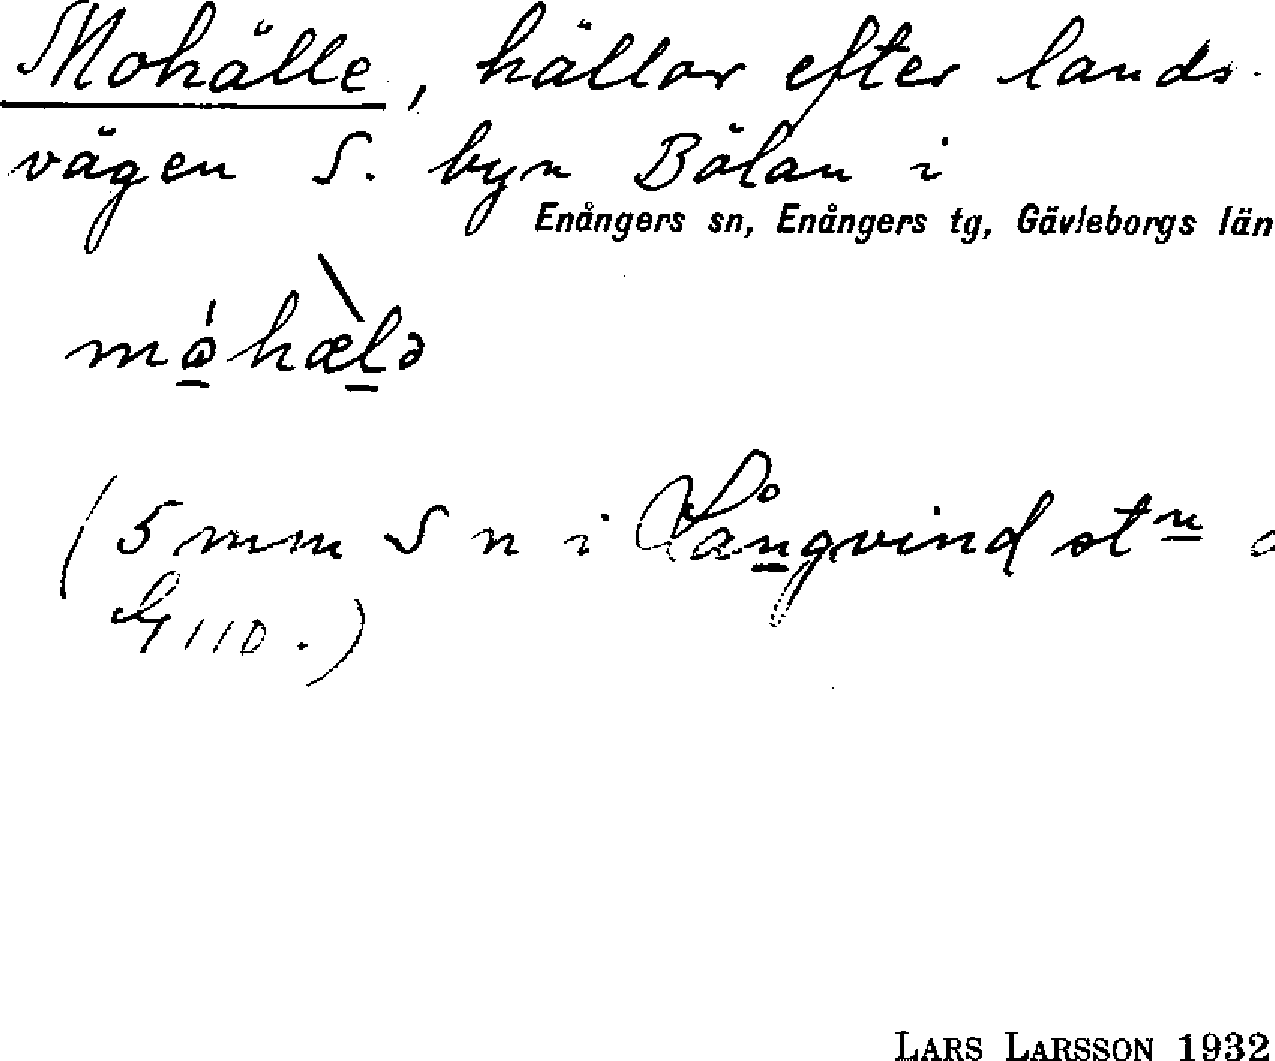 Mohälle, hällar efter lands-
vägen S. byn Bölan i
Enångers sn, Enångers tg, Gävleborgs län
mo̱hæḻə
(5 mm S n i Långvind st n
G 110.)
LARS LARSSON 1932